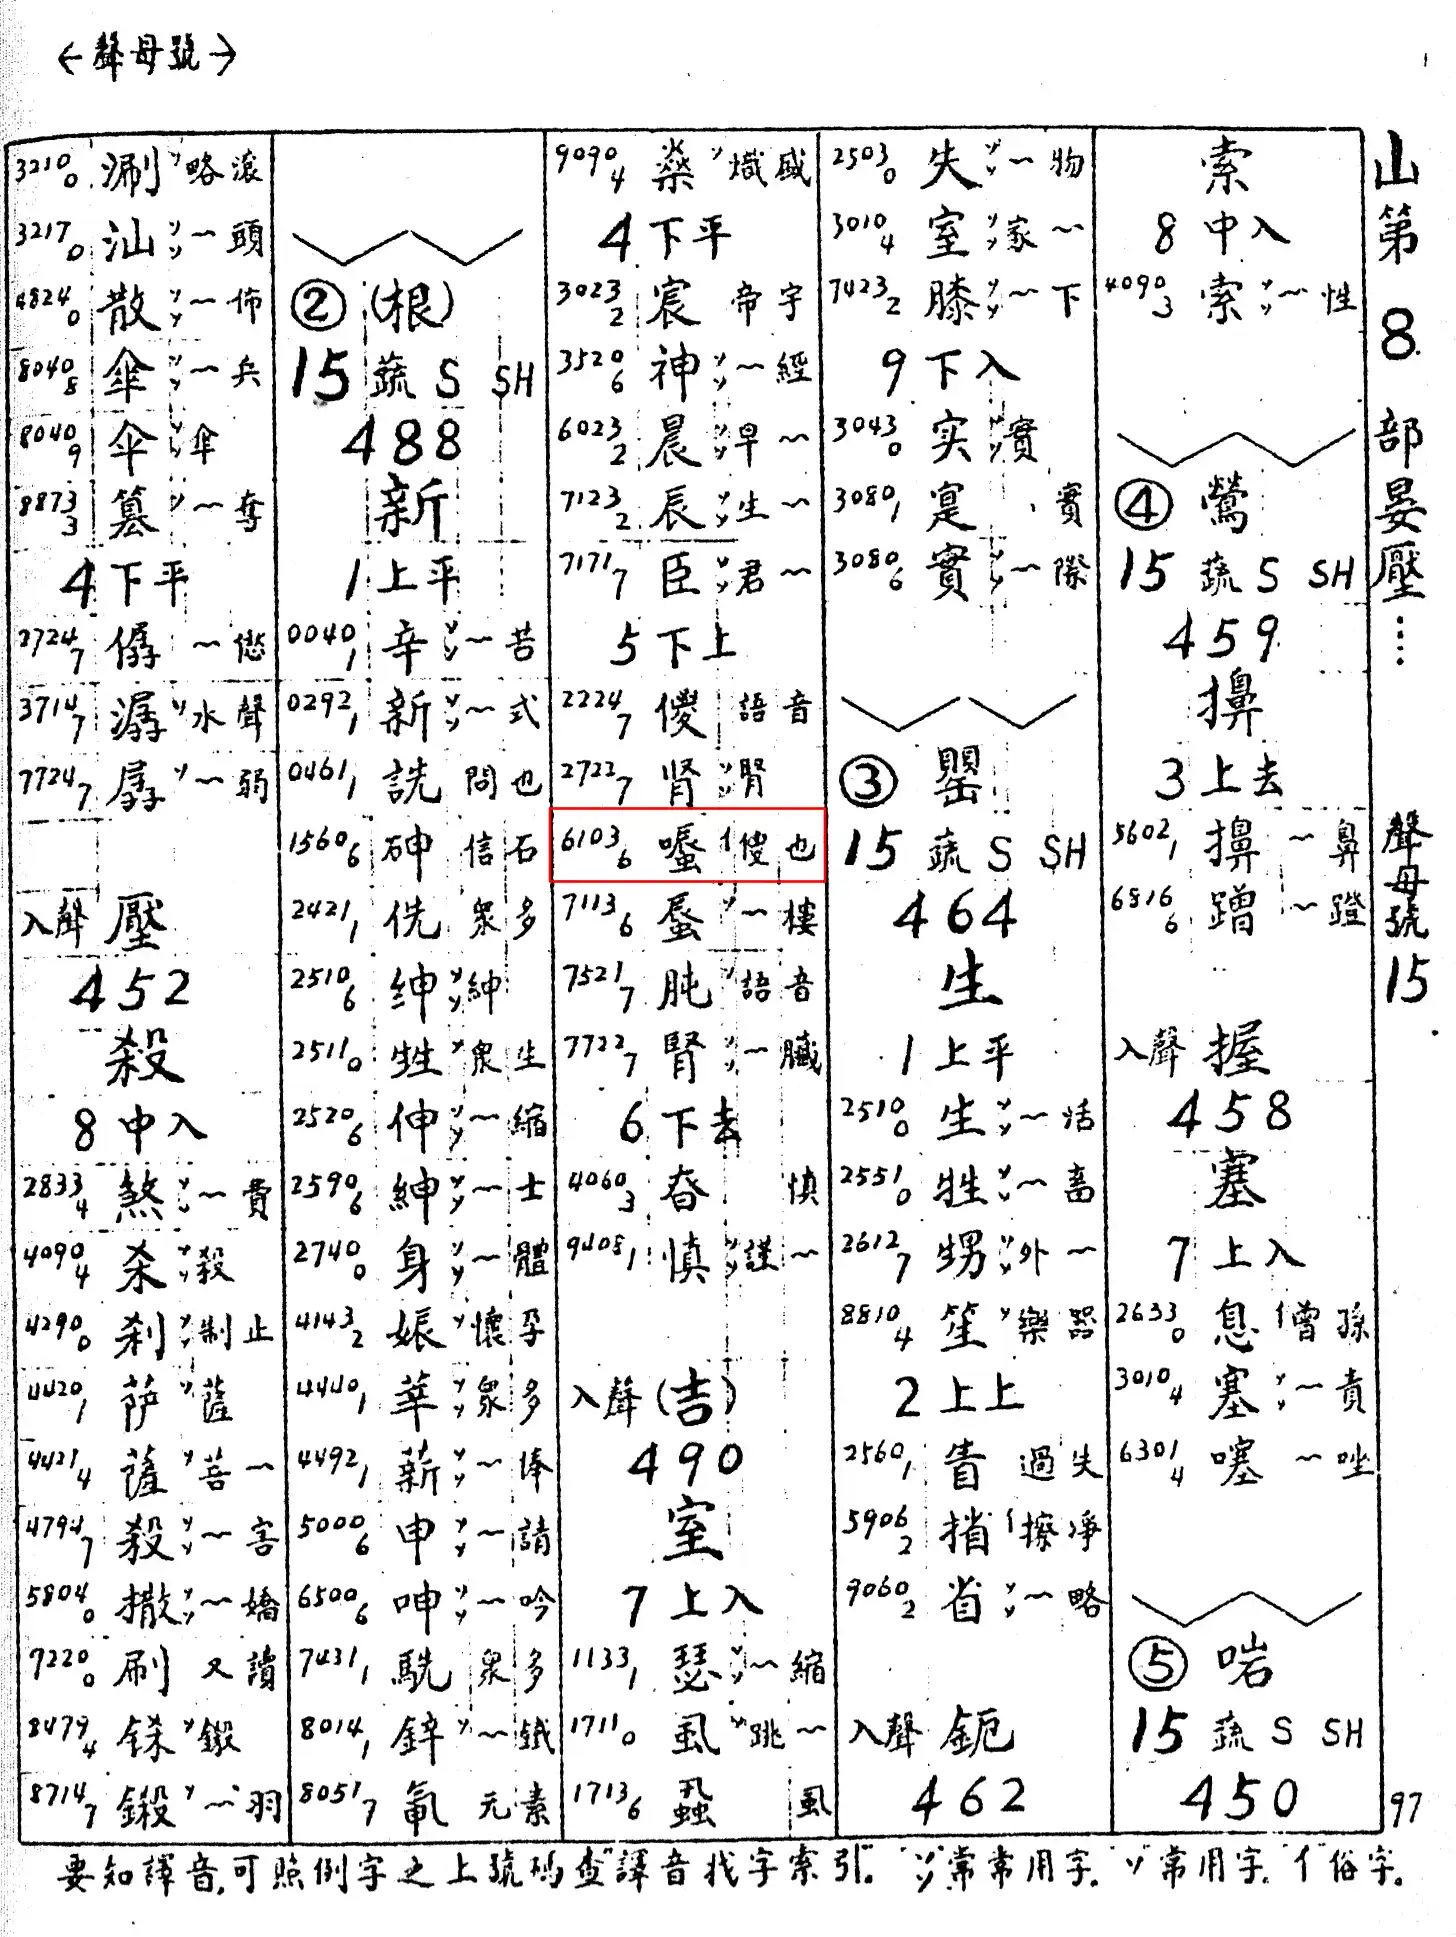 ←聲母號→
32100 涮 ʻʻ略滾
32170 汕 〃〜頭
48240 散 〃〜佈
80408 傘 〃〜兵
80409 伞 〃傘
88733 篡 〃〜奪
4 下平
27247 僝 〜僽
37147 潺 ʻʻ水聲
77247 孱 ʻʻ〜弱
入聲 壓
452
殺
8 中入
28334 煞 〃〜費
40904 杀 〃殺
42900 刹 〃制止
44201 萨 ʻʻ薩
44214 薩 ʻʻ菩〜
47947 殺 〃〜害
58040 撒 〃〜嬌
72200 刷 又讀
84794 铩 ʻʻ鎩
87147 鎩 ʻʻ〜羽
② (根)
15 蔬 S SH
488
新
1 上平
00401 辛 〃〜苦
02921 新 〃〜式
04611 詵 問也
15606 砷 信石
24211 侁 衆多
25106 绅 〃紳
25110 甡 ʻʻ衆生
25206 伸 〃〜縮
25906 紳 〃〜士
27400 身 〃〜體
41432 娠 ʻʻ懷孕
44401 莘 〃衆多
44921 薪 〃〜俸
50006 申 〃〜請
65006 呻 〃〜吟
74311 駪 衆多
80141 鋅 〃〜鐵
80517 氠 元素
90904 燊 ʻʻ熾盛
4 下平
30232 宸 帝宇
35206 神 〃〜經
60232 晨 〃早〜
71232 辰 〃生〜
71717 臣 〃君〜
5 下上
22247 㑗 語音
27227 肾 〃腎
61036 㗮 亻傻也
71136 蜃 ʻʻ〜樓
75217 肫 ʻʻ語音
77227 腎 〃〜臟
6 下去
40603 昚 慎
94081 慎 〃謹〜
入聲 (吉)
490
室
7 上入
11331 瑟 〃〜縮
17110 虱 ʻʻ跳〜
17136 蝨 虱
25030 失 〃〜物
30104 室 〃家〜
74232 膝 〃〜下
9 下入
30430 实 〃實
30801 寔 實
30806 實 〃〜際
③ 罌
15 蔬 S SH
464
生
1 上平
25100 生 〃〜活
25510 牲 〃〜畜
26127 甥 〃外〜
88104 笙 ʻʻ樂器
2 上上
25601 眚 過失
59062 㨘 亻擦凈
90602 省 〃〜略
入聲 鈪
462
索
8 中入
40903 索 〃〜性
④ 鶯
15 蔬 S SH
459
擤
3 上去
56021 擤 〜鼻
68166 蹭 〜蹬
入聲 握
458
塞
7 上入
26330 息 亻曾孫
30104 塞 〃〜責
63014 噻 〜唑
⑤ 啱
15 蔬 S SH
450
山第 8 部晏壓…… 聲母號 15
97
要知譯音,可照例字之上號碼查“譯音找字索引”。“〃”常常用字.“ʻʻ”常用字.“亻”俗字。